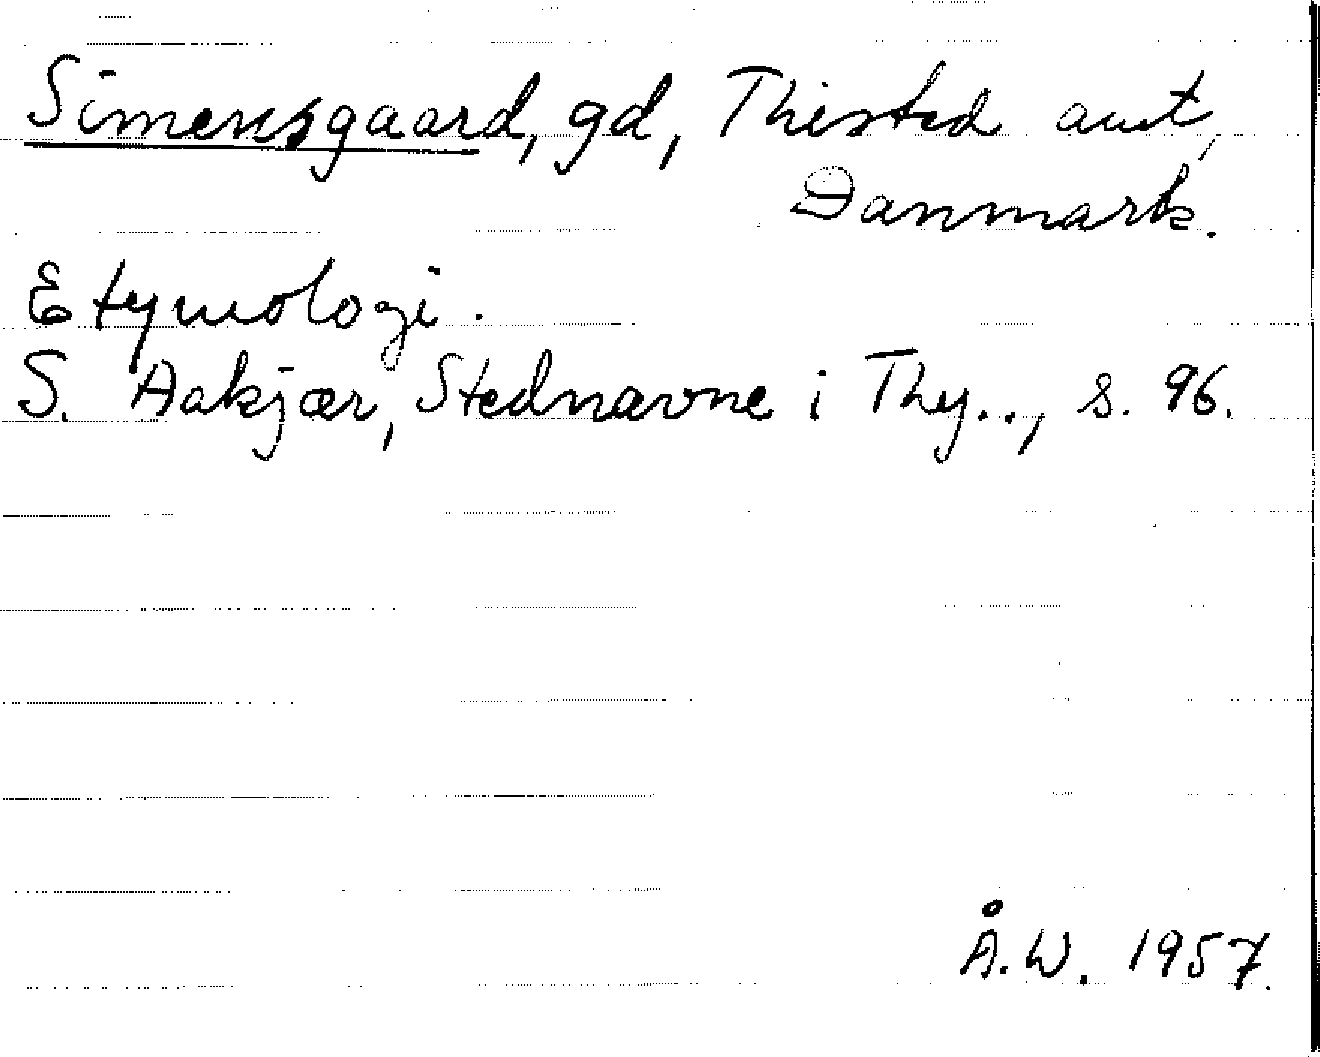 Simensgaard, gd, Thisted amt,
Danmark.
Etymologi.
S. Aakjær, Stednavne i Thy.., s. 96.
Å.W. 1957.